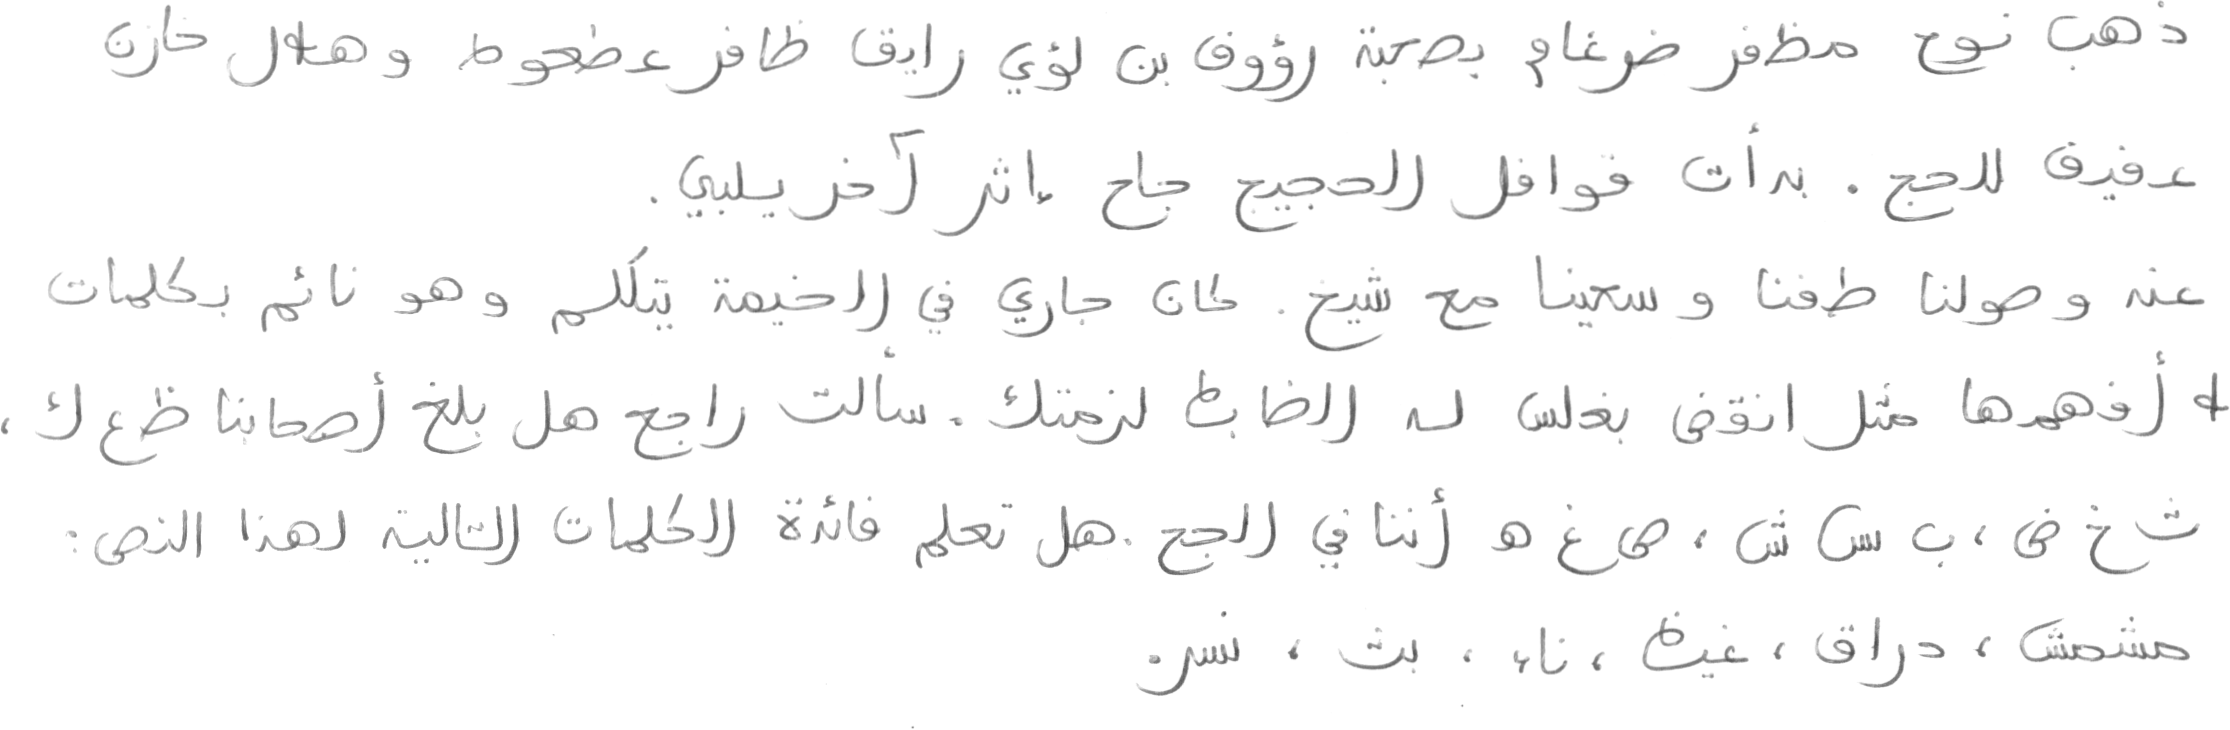 ذهب نوح مظفر ضرغام بصحبة رؤوف بن لؤي رايق ظافر عطعوط وهلال خازن
عفيف للحج . بدأت قوافل الحجيج حاج إثر آخر يلبي .
عند وصولنا طفنا وسعينا مع شيخ . كان جاري في الخيمة يتكلم وهو نائم بكلمات
لا أفهمها مثل انقض بغلس له الضابط لزمتك . سألت راجح هل بلغ أصحابنا ظ ع ك ،
ث خ ض ، ب س ش ، ص غ ه أننا في الحج . هل تعلم فائدة الكلمات التالية لهذا النص :
مشمش ، دراق ، غيظ ، ناء ، بث ، نسر .